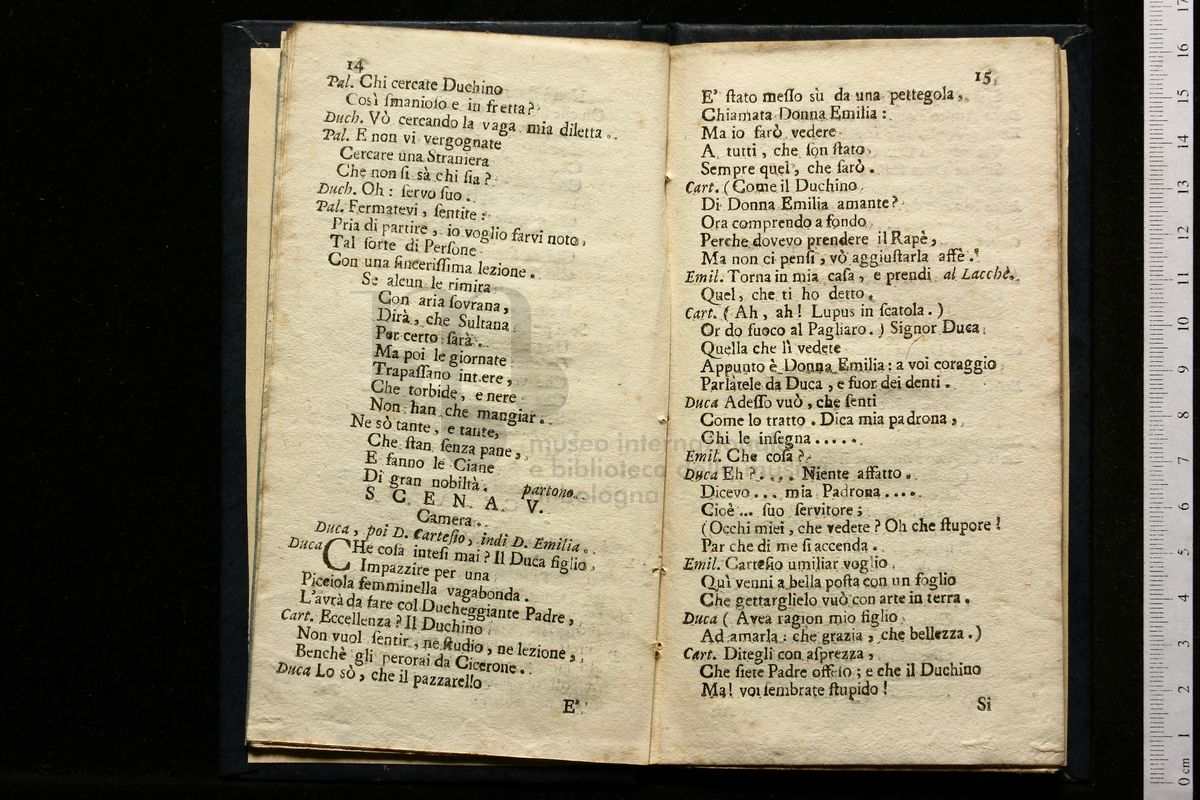 14
Pal. Chi cercate Duchino
Così ſmanioſo e in fretta?
Duch. Vò cercando la vaga mia diletta.
Pal. E non vi vergognate
Cercare una Straniera
Che non ſi sà chi ſia?
Duch. Oh: ſervo ſuo.
Pal. Fermatevi, ſentite:
Pria di partire, io voglio farvi noto,
Tal ſorte di Perſone
Con una ſinceriſſima lezione.
Se alcun le rimira
Con aria ſovrana,
Dirà, che Sultana
Per certo ſarà.
Ma poi le giornate
Trapaſſano intere,
Che torbide, e nere
Non han che mangiar.
Ne sò tante, e tante,
Che ſtan ſenza pane,
E fanno le Ciane
Di gran nobiltà. partono.
S C E N A V.
Camera.
Duca, poi D. Carteſio, indi D. Emilia.
Duca CHe coſa inteſi mai? Il Duca figlio,
Impazzire per una
Picciola femminella vagabonda.
L'avrà da fare col Ducheggiante Padre,
Cart. Eccellenza? Il Duchino
Non vuol ſentir, ne ſtudio, ne lezione,
Benchè gli perorai da Cicerone.
Duca Lo sò, che il pazzarello
E'
15
E' ſtato meſſo sù da una pettegola,
Chiamata Donna Emilia:
Ma io farò vedere
A tutti, che ſon ſtato
Sempre quel, che ſarò.
Cart. (Come il Duchino
Di Donna Emilia amante?
Ora comprendo a fondo
Perche dovevo prendere il Rapè,
Ma non ci penſi, vò aggiuſtarla affè.
Emil. Torna in mia caſa, e prendi al Lacchè.
Quel, che ti ho detto.
Cart. (Ah, ah! Lupus in ſcatola.)
Or do fuoco al Pagliaro.) Signor Duca
Quella che lì vedete
Appunto è Donna Emilia: a voi coraggio
Parlàtele da Duca, e fuor dei denti.
Duca Adeſſo vuò, che ſenti
Come lo tratto. Dica mia padrona,
Chi le inſegna.....
Emil. Che coſa?
Duca Eh?.... Niente affatto.
Dicevo... mia Padrona....
Cioè... ſuo ſervitore;
(Occhi miei, che vedete? Oh che ſtupore!
Par che di me ſi accenda.
Emil. Carteſio umiliar voglio
Quì venni a bella poſta con un foglio
Che gettarglielo vuò con arte in terra.
Duca (Avea ragion mio figlio
Ad amarla: che grazia, che bellezza.)
Cart. Ditegli con aſprezza,
Che ſiete Padre offeſo; e che il Duchino
Ma! voi ſembrate ſtupido!
Si
museo internazionale
e biblioteca della musica
bologna